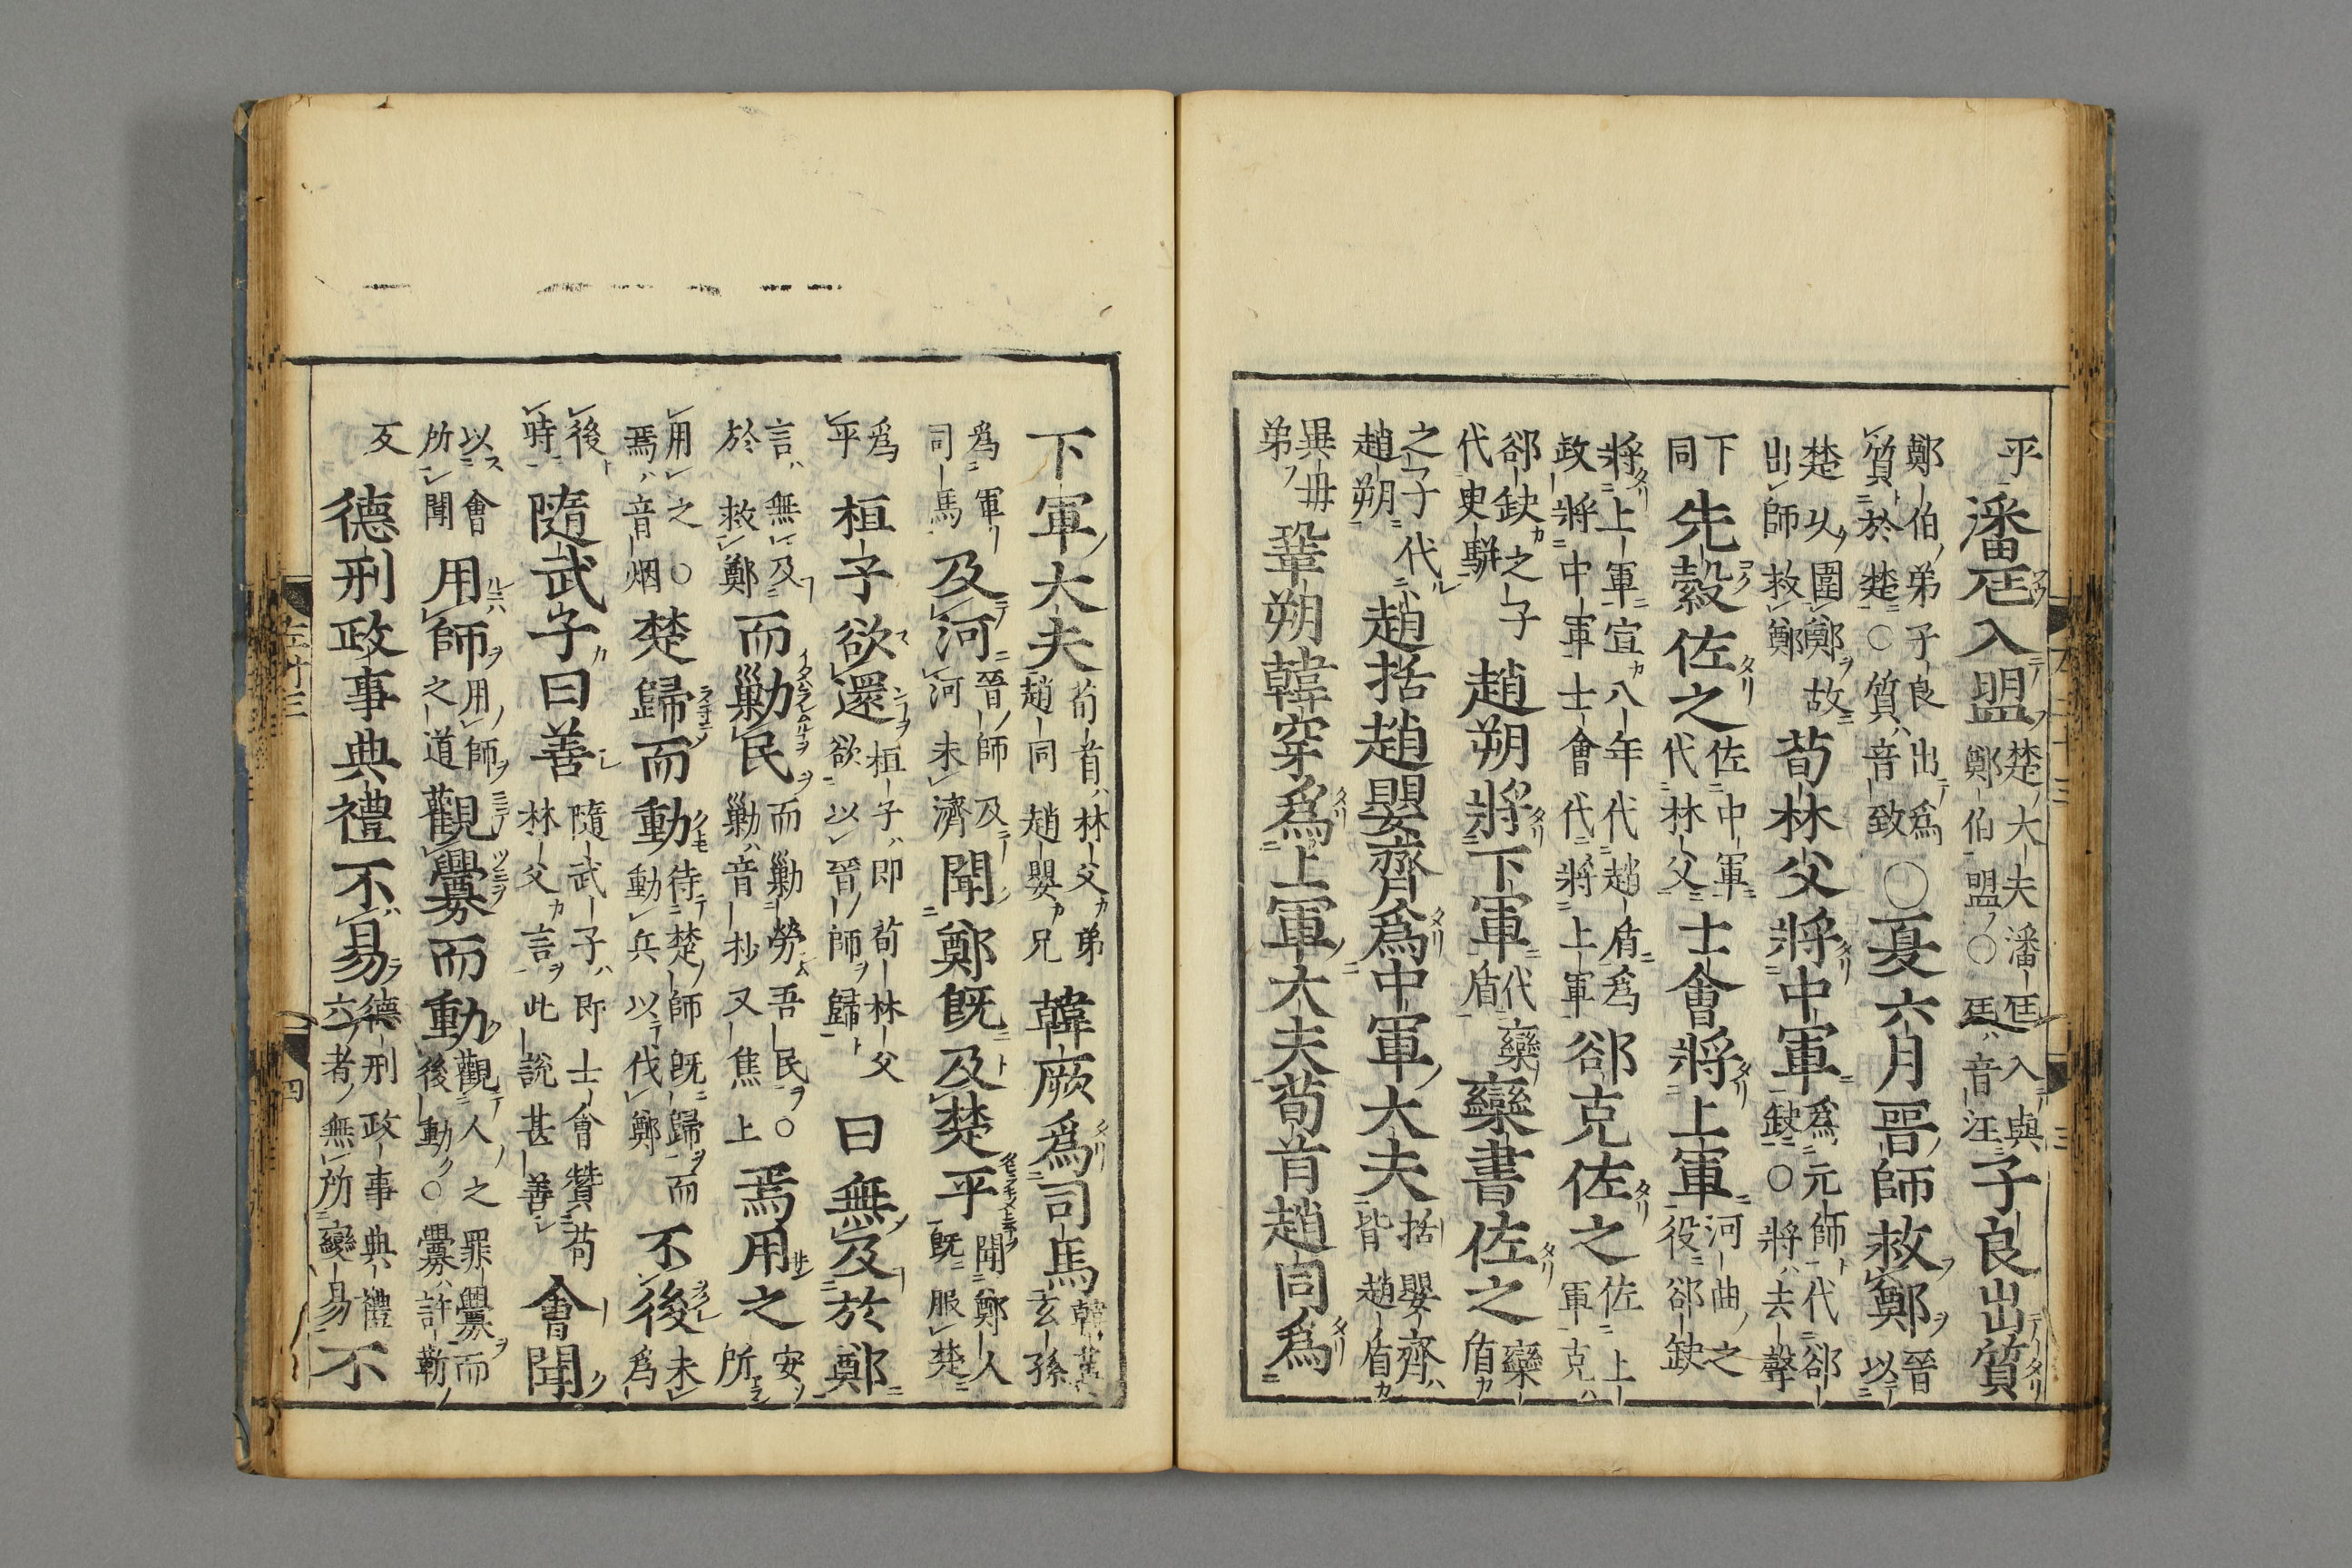 乎潘尫入盟楚大夫潘尫入與鄭伯盟○尫音汪子良出質
鄭伯弟子良出爲質於楚○質音致○夏六月晉師救鄭晉以
楚以圍鄭故出師救鄭荀林父將中軍爲元師代郤缺○將去聲
下同先縠佐之佐中軍代林父士會將上軍河曲之役郤缺
將上軍宣八年代趙盾爲政將中軍士會代將上軍郤克佐之佐上軍克
郤缺之子代臾駢趙朔將下軍代欒盾欒書佐之欒盾
之子代趙朔趙括趙嬰齊爲中軍大夫括嬰齊皆趙盾
異毋弟鞏朔韓穿爲上軍大夫荀首趙同爲
下軍大夫荀首林父弟趙同趙嬰兄韓厥爲司馬韓萬玄孫
爲軍司馬及河晉師及河未濟聞鄭既及楚平聞鄭人既服楚
爲平桓子欲還桓子即荀林父欲以晉師歸曰無及於鄭
言無及於救鄭而勦民而勦勞吾民○勦音抄又焦上焉用之安所
用之○焉音烟楚歸而動待楚師既歸而動兵以伐鄭不後未爲
後時隨武子曰善隨武子即士會贊荀林父言此說甚善會聞
以會所聞用師用師之道觀釁而動觀人之罪釁而後動○釁許靳
反德刑政事典禮不易德刑政事典禮六者無所變易不